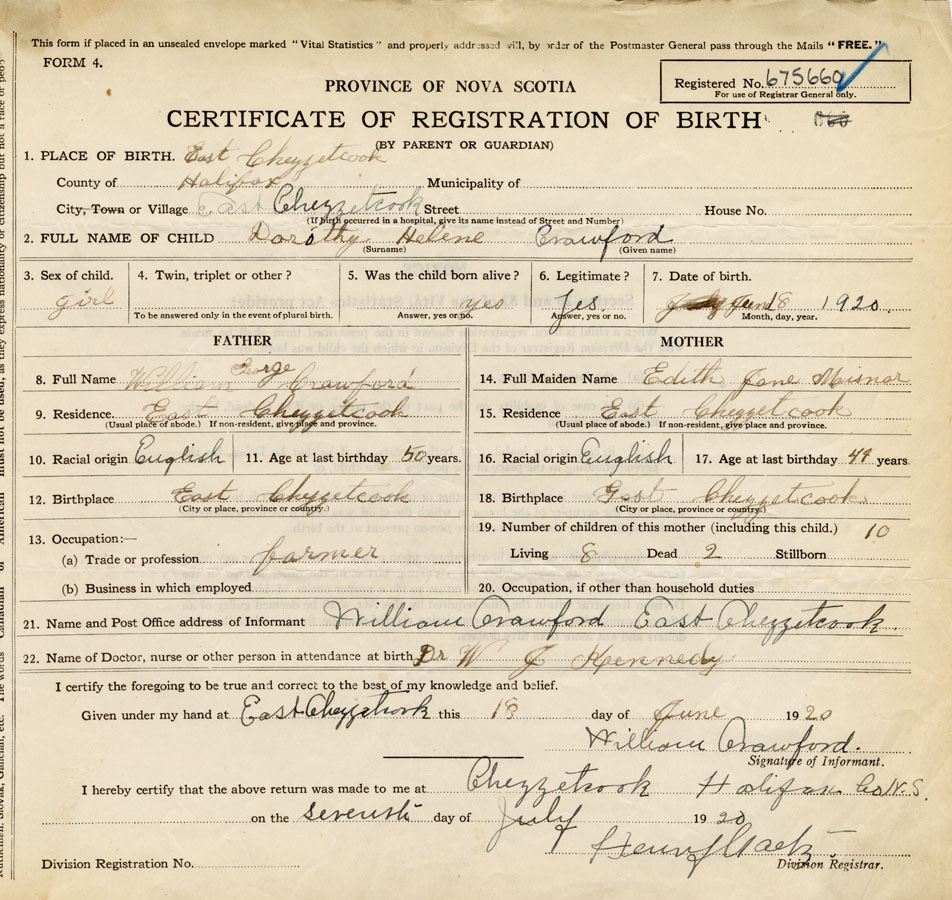 This form if placed in an unsealed envelope marked "Vital Statistics" and properly addressed will, by order of the Postmaster General pass through the Mails "FREE."
FORM 4.
Registered No. 675660
For use of Registrar General only.
PROVINCE OF NOVA SCOTIA
CERTIFICATE OF REGISTRATION OF BIRTH
(BY PARENT OR GUARDIAN)
1. PLACE OF BIRTH. East Chezzetcook
County of Halifax Municipality of
City, Town or Village East Chezzetcook Street House No.
(If birth occurred in a hospital, give its name instead of Street and Number)
2. FULL NAME OF CHILD Dorothy Helene Crawford
(Surname) (Given name)
3. Sex of child. 4. Twin, triplet or other? 5. Was the child born alive? 6. Legitimate? 7. Date of birth.
girl yes Yes. June 18 1920.
To be answered only in the event of plural birth. Answer, yes or no. Answer, yes or no. Month, day, year.
FATHER MOTHER
8. Full Name William George Crawford 14. Full Maiden Name Edith Jane Maisnor
9. Residence. East Chezzetcook 15. Residence East Chezzetcook
(Usual place of abode.) If non-resident, give place and province. (Usual place of abode.) If non-resident, give place and province.
10. Racial origin English 11. Age at last birthday 50 years. 16. Racial origin English 17. Age at last birthday years
12. Birthplace East Chezzetcook 18. Birthplace East Chezzetcook
(City or place, province or country.) (City or place, province or country.)
13. Occupation:— 19. Number of children of this mother (including this child.) 10
(a) Trade or profession farmer Living 8 Dead 2 Stillborn
(b) Business in which employed 20. Occupation, if other than household duties
21. Name and Post Office address of Informant William Crawford East Chezzetcook.
22. Name of Doctor, nurse or other person in attendance at birth Dr W J Kennedy
I certify the foregoing to be true and correct to the best of my knowledge and belief.
Given under my hand at East Chezzetcook this 18 day of June 1920
William Crawford.
Signature of Informant.
I hereby certify that the above return was made to me at Chezzetcook Halifax Co N.S.
on the seventh day of July 1920
Division Registration No. Division Registrar.